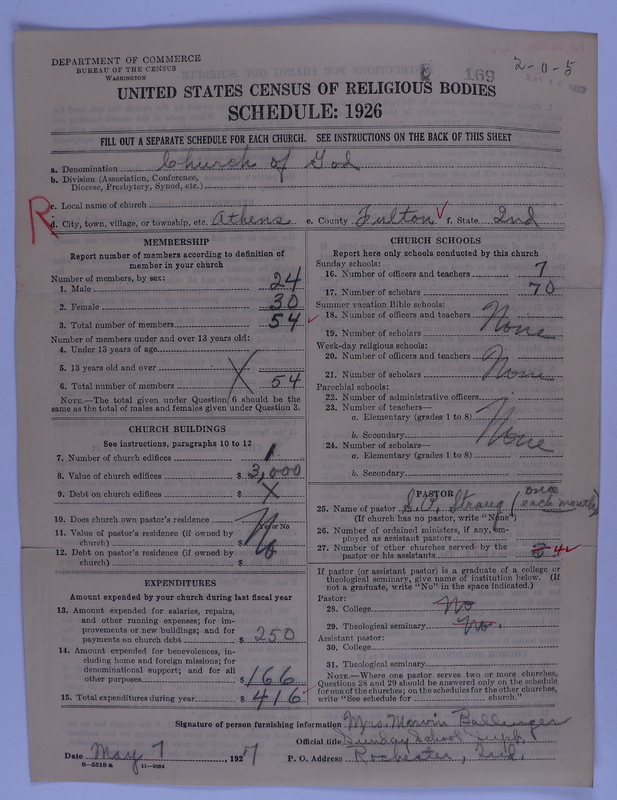 DEPARTMENT OF COMMERCE
BUREAU OF THE CENSUS
WASHINGTON
169
2-0-5
UNITED STATES CENSUS OF RELIGIOUS BODIES
SCHEDULE: 1926
FILL OUT A SEPARATE SCHEDULE FOR EACH CHURCH. SEE INSTRUCTIONS ON THE BACK OF THIS SHEET
a. Denomination Church of God
b. Division (Association, Conference,
Diocese, Presbytery, Synod, etc.)
R
c. Local name of church
d. City, town, village, or township, etc. Athens e. County Fulton f. State Ind
MEMBERSHIP
Report number of members according to definition of
member in your church
Number of members, by sex:
1. Male 24
2. Female 30
3. Total number of members 54
Number of members under and over 13 years old:
4. Under 13 years of age
5. 13 years old and over
6. Total number of members 54
NOTE.—The total given under Question 6 should be
same as the total of males and females given under Question 3.
CHURCH BUILDINGS
See instructions, paragraphs 10 to 12
7. Number of church edifices 1
8. Value of church edifices $ 3,000
9. Debt on church edifices $ X
10. Does church own pastor's residence No
Yes or No
11. Value of pastor's residence (if owned by
church) $
12. Debt on pastor's residence (if owned by
church) $
EXPENDITURES
Amount expended by your church during last fiscal year
13. Amount expended for salaries, repairs,
and other running expenses; for im-
provements or new buildings; and for
payments on church debt $ 250
14. Amount expended for benevolences, in-
cluding home and foreign missions; for
denominational support; and for all
other purposes $ 166
15. Total expenditures during year $ 416
CHURCH SCHOOLS
Report here only schools conducted by this church
Sunday schools:
16. Number of officers and teachers 7
17. Number of scholars 70
Summer vacation Bible schools:
18. Number of officers and teachers
None
19. Number of scholars
Week-day religious schools:
20. Number of officers and teachers
None
21. Number of scholars
Parochial schools:
22. Number of administrative officers
23. Number of teachers—
a. Elementary (grades 1 to 8)
None
b. Secondary
24. Number of scholars—
a. Elementary (grades 1 to 8)
b. Secondary
PASTOR
25. Name of pastor (once each month)
(If church has no pastor, write "None")
26. Number of ordained ministers, if any, em-
ployed as assistant pastors
27. Number of other churches served by the
pastor or his assistants 4
If pastor (or assistant pastor) is a graduate of a college or
theological seminary, give name of institution below. (If
not a graduate, write "No" in the space indicated.)
Pastor:
28. College No
29. Theological seminary No.
Assistant pastor:
30. College
31. Theological seminary
NOTE.—Where one pastor serves two or more churches,
Questions 28 and 29 should be answered only on the schedule
for one of the churches; on the schedules for the other churches,
write "See schedule for church."
Signature of person furnishing information Mrs. Marvin Ballenger
Official title Sunday School Supt.
Date May 7, 1927 P. O. Address Rochester, Ind.
8-5518a 11-9254